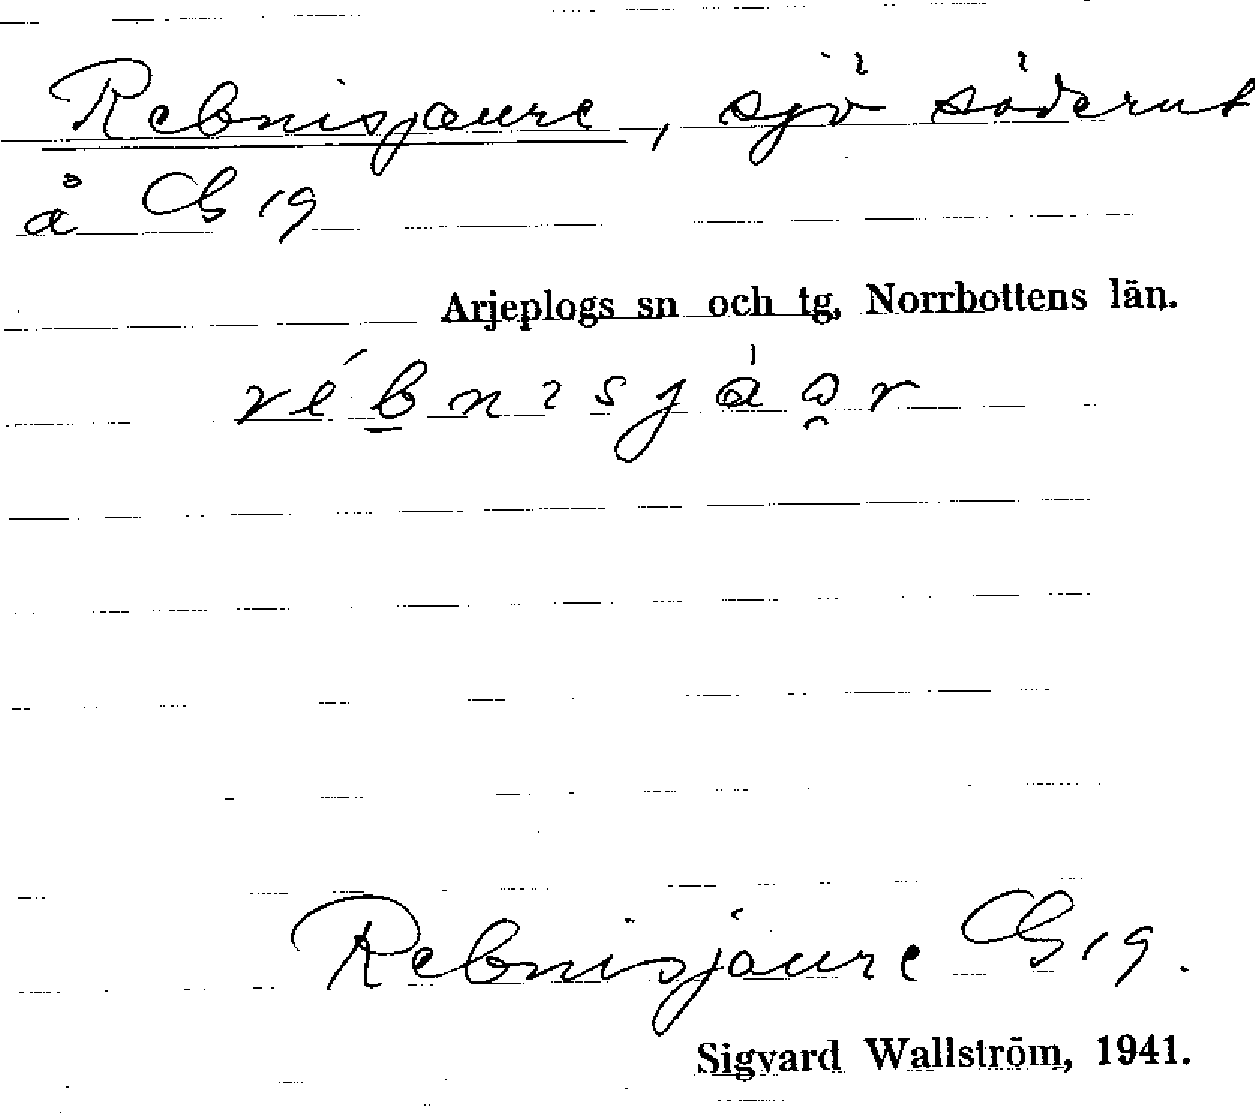 Rebnisjaure, sjö söderut
å Gb 19
Arjeplogs sn och tg, Norrbottens län.
Rebnisjaure Gb 19.
Sigvard Wallström, 1941.